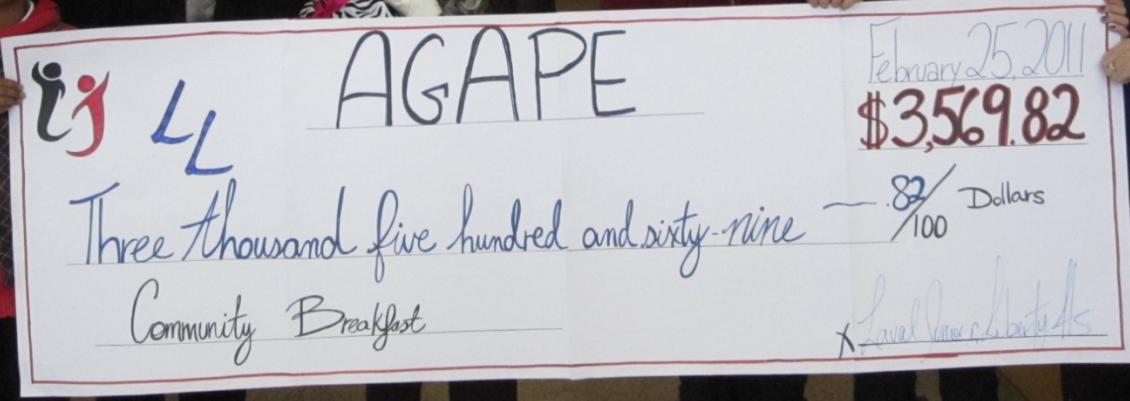 LJ
LL
AGAPE
February 25, 2011
$3,569.82
Three thousand five hundred and sixty-nine — .82/100 Dollars
Community Breakfast
X Laval Junior & Liberty Hs